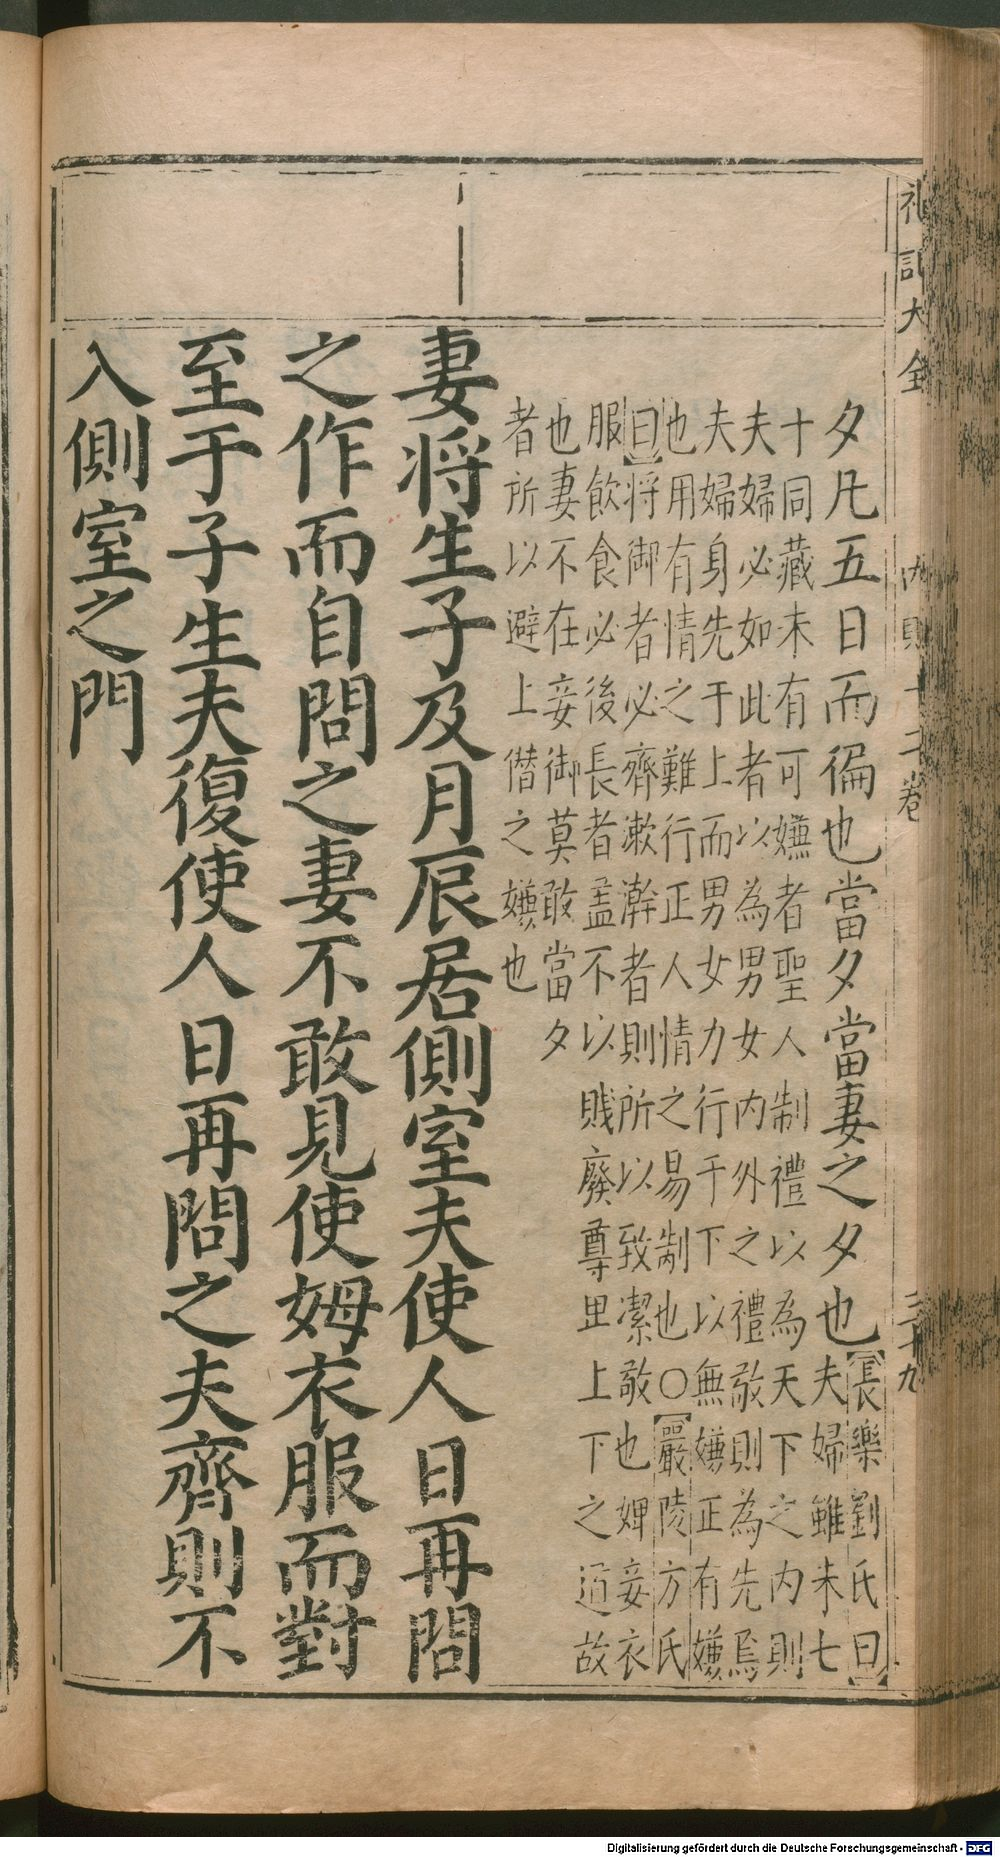 礼記大全 内則十二卷 三十九
夕凡五日而徧也當夕當妻之夕也
長樂劉氏曰
夫婦雖未七
十同藏未有可嫌者聖人制禮以為天下之内則
夫婦必如此者以為男女内外之禮敬則為先焉
夫婦身先于上而男女力行于下以無嫌正有嫌
也用有情之難行正人情之易制也〇嚴陵方氏
曰将御者必齊漱澣者則所以致潔敬也婢妾衣
服飲食必後長者盖不以賎廢尊卑上下之道故
也妻不在妾御莫敢當夕
者所以避上僭之嫌也
妻将生子及月辰居側室夫使人日再問
之作而自問之妻不敢見使姆衣服而對
至于子生夫復使人日再問之夫齊則不
入側室之門
Digitalisierung gefördert durch die Deutsche Forschungsgemeinschaft - DFG